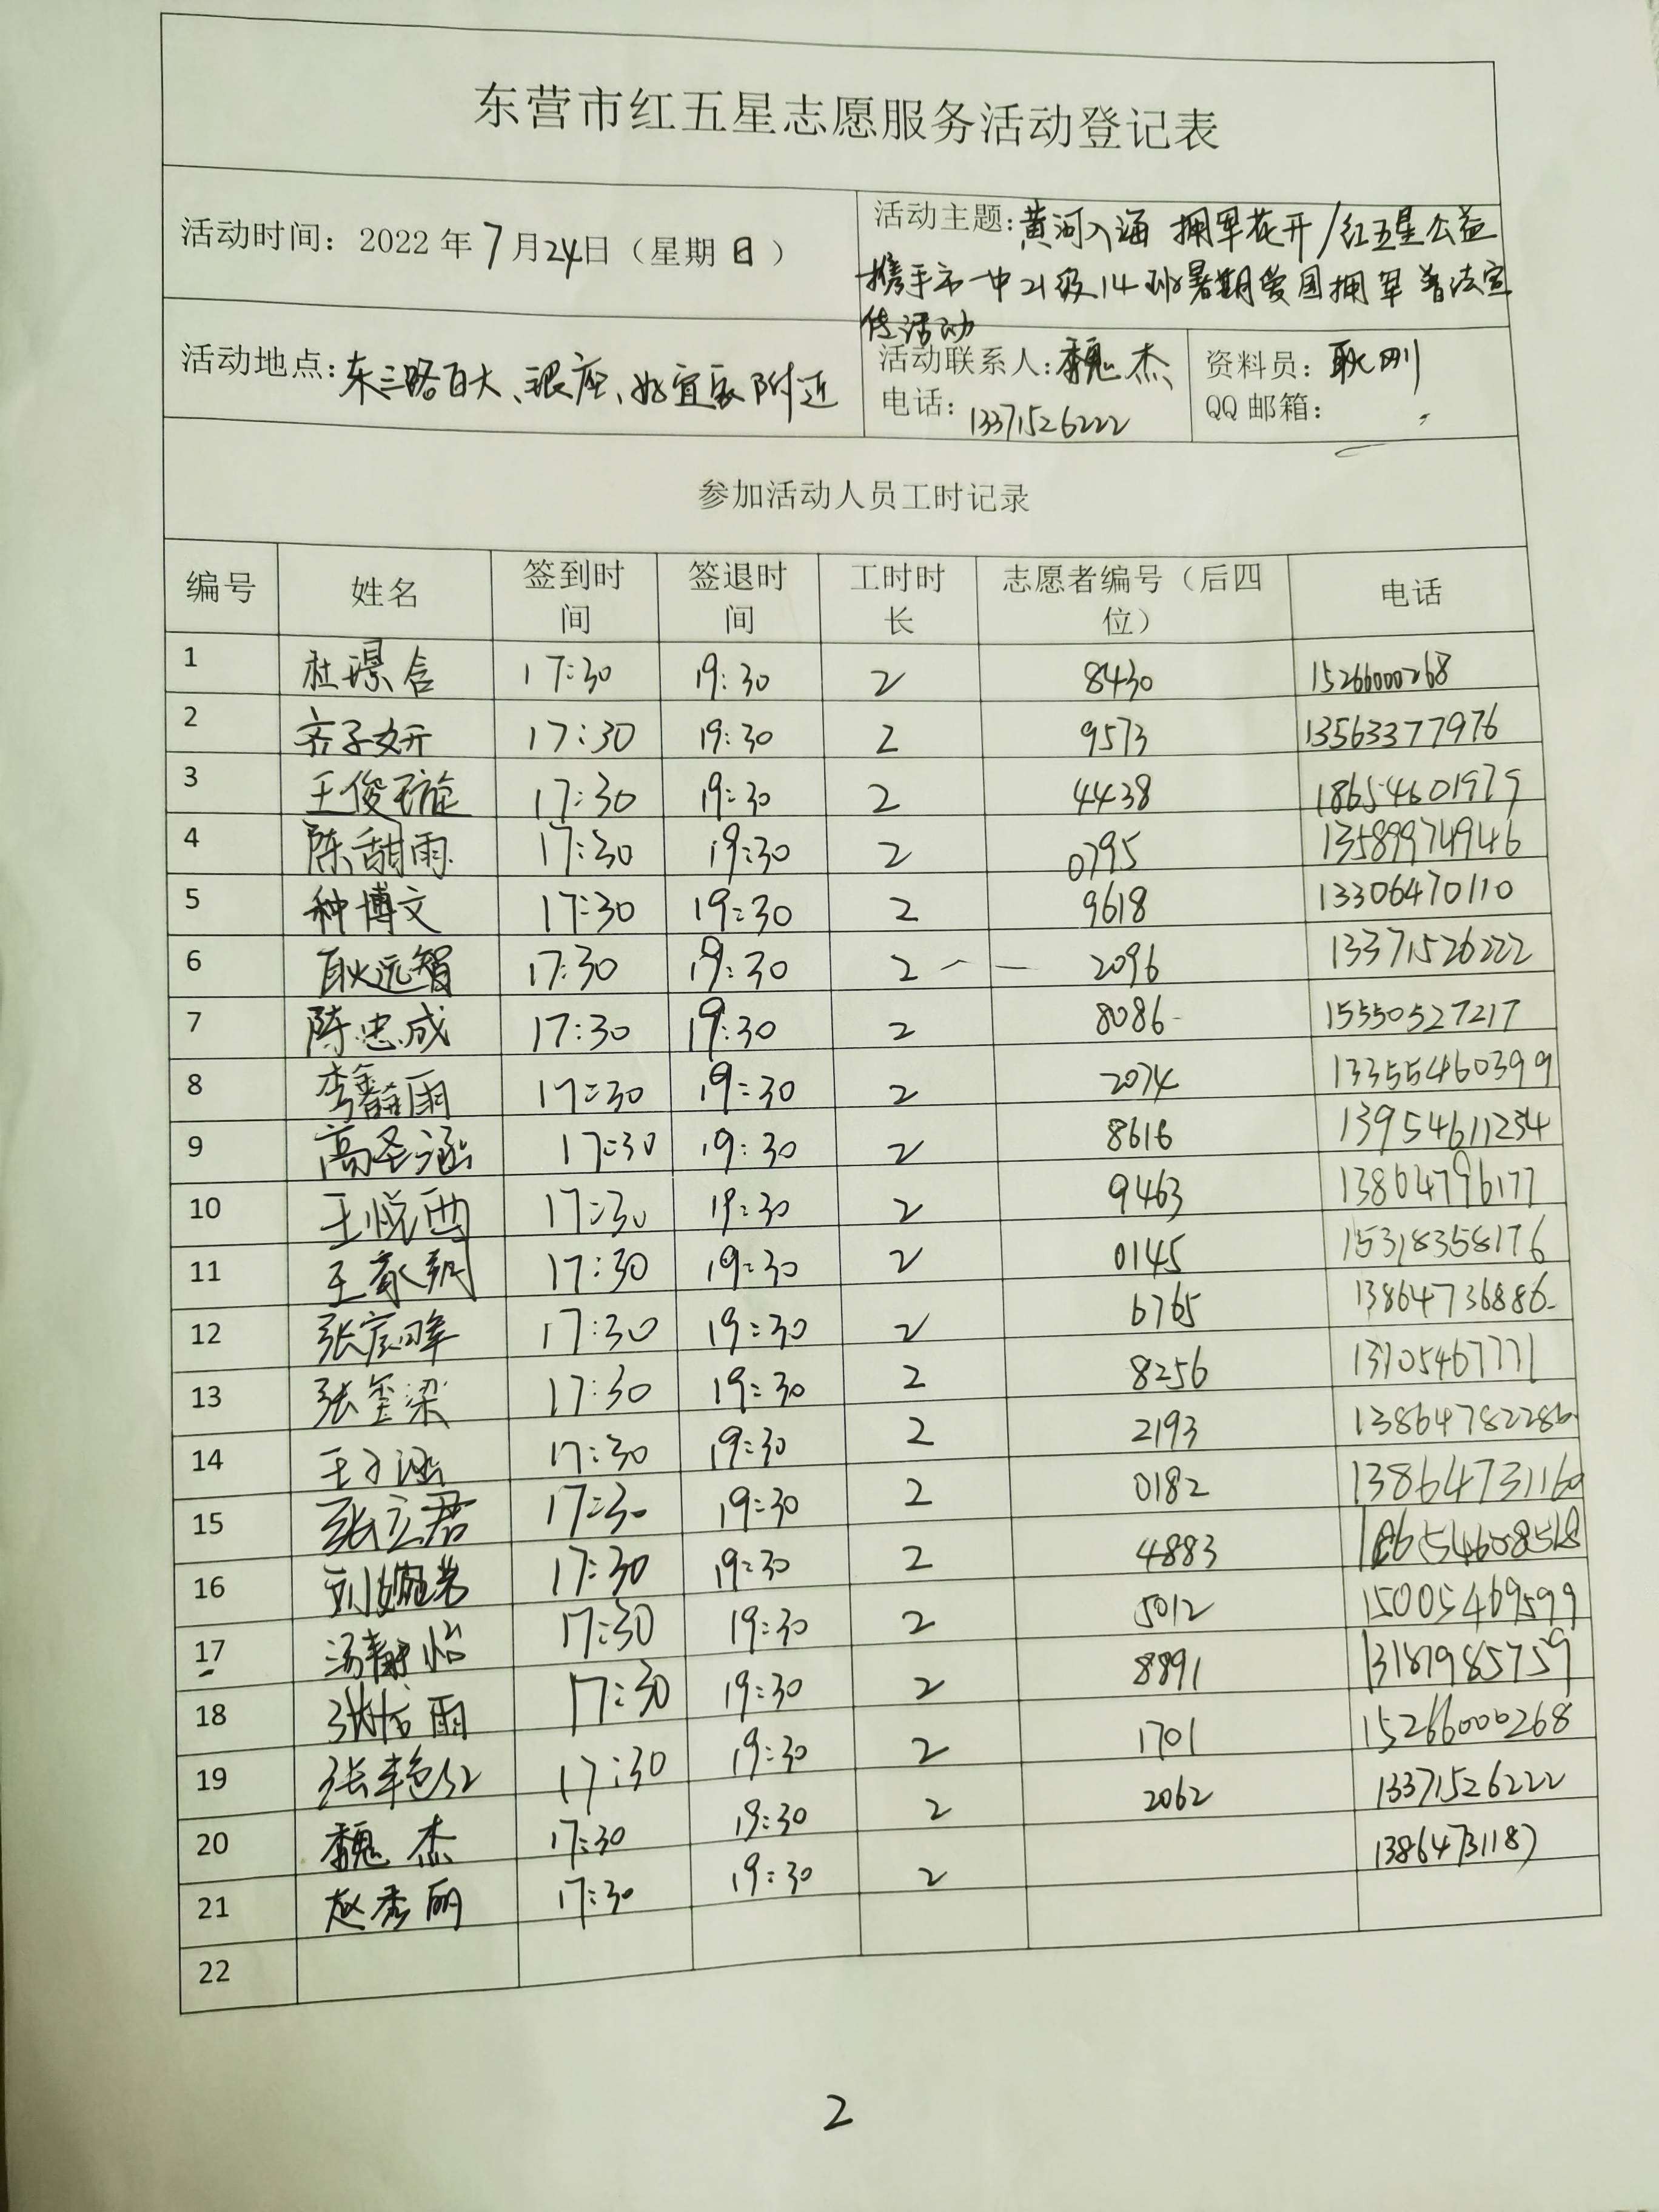 东营市红五星志愿服务活动登记表
活动时间：2022年7月24日（星期日）
活动主题：黄河入海 拥军花开/红五星公益
携手市一中21级14班暑期爱国拥军普法宣
传活动
活动地点：东三路百大、银座、好宜家附近
活动联系人：魏杰
电话：13371526222
资料员：耿刚
QQ邮箱：
参加活动人员工时记录
编号 姓名 签到时间 签退时间 工时时长 志愿者编号（后四位） 电话
1 杜璟含 17:30 19:30 2 8430 15266000268
2 齐子妍 17:30 19:30 2 9573 13563377976
3 王俊璇 17:30 19:30 2 4438 18654601979
4 陈甜雨 17:30 19:30 2 0795 13589974946
5 种博文 17:30 19:30 2 9618 13306470110
6 耿远智 17:30 19:30 2 2096 13371526222
7 陈忠成 17:30 19:30 2 8086 15550527217
8 李馨雨 17:30 19:30 2 2074 13355460399
9 高圣涵 17:30 19:30 2 8616 13954611234
10 王悦西 17:30 19:30 2 9463 13864796177
11 王 17:30 19:30 2 0145 15318358176
12 张宸晖 17:30 19:30 2 6765 13864736886
13 张玺梁 17:30 19:30 2 8256 13105467771
14 王子涵 17:30 19:30 2 2193 13864782286
15 张立君 17:30 19:30 2 0182 13864731160
16 刘 17:30 19:30 2 4883 18654608518
17 冯静怡 17:30 19:30 2 5012 15005469599
18 张 雨 17:30 19:30 2 8891 13181985759
19 张艳红 17:30 19:30 2 1701 15266000268
20 魏杰 17:30 19:30 2 2062 13371526222
21 赵秀丽 17:30 19:30 2 13864731187
22
2